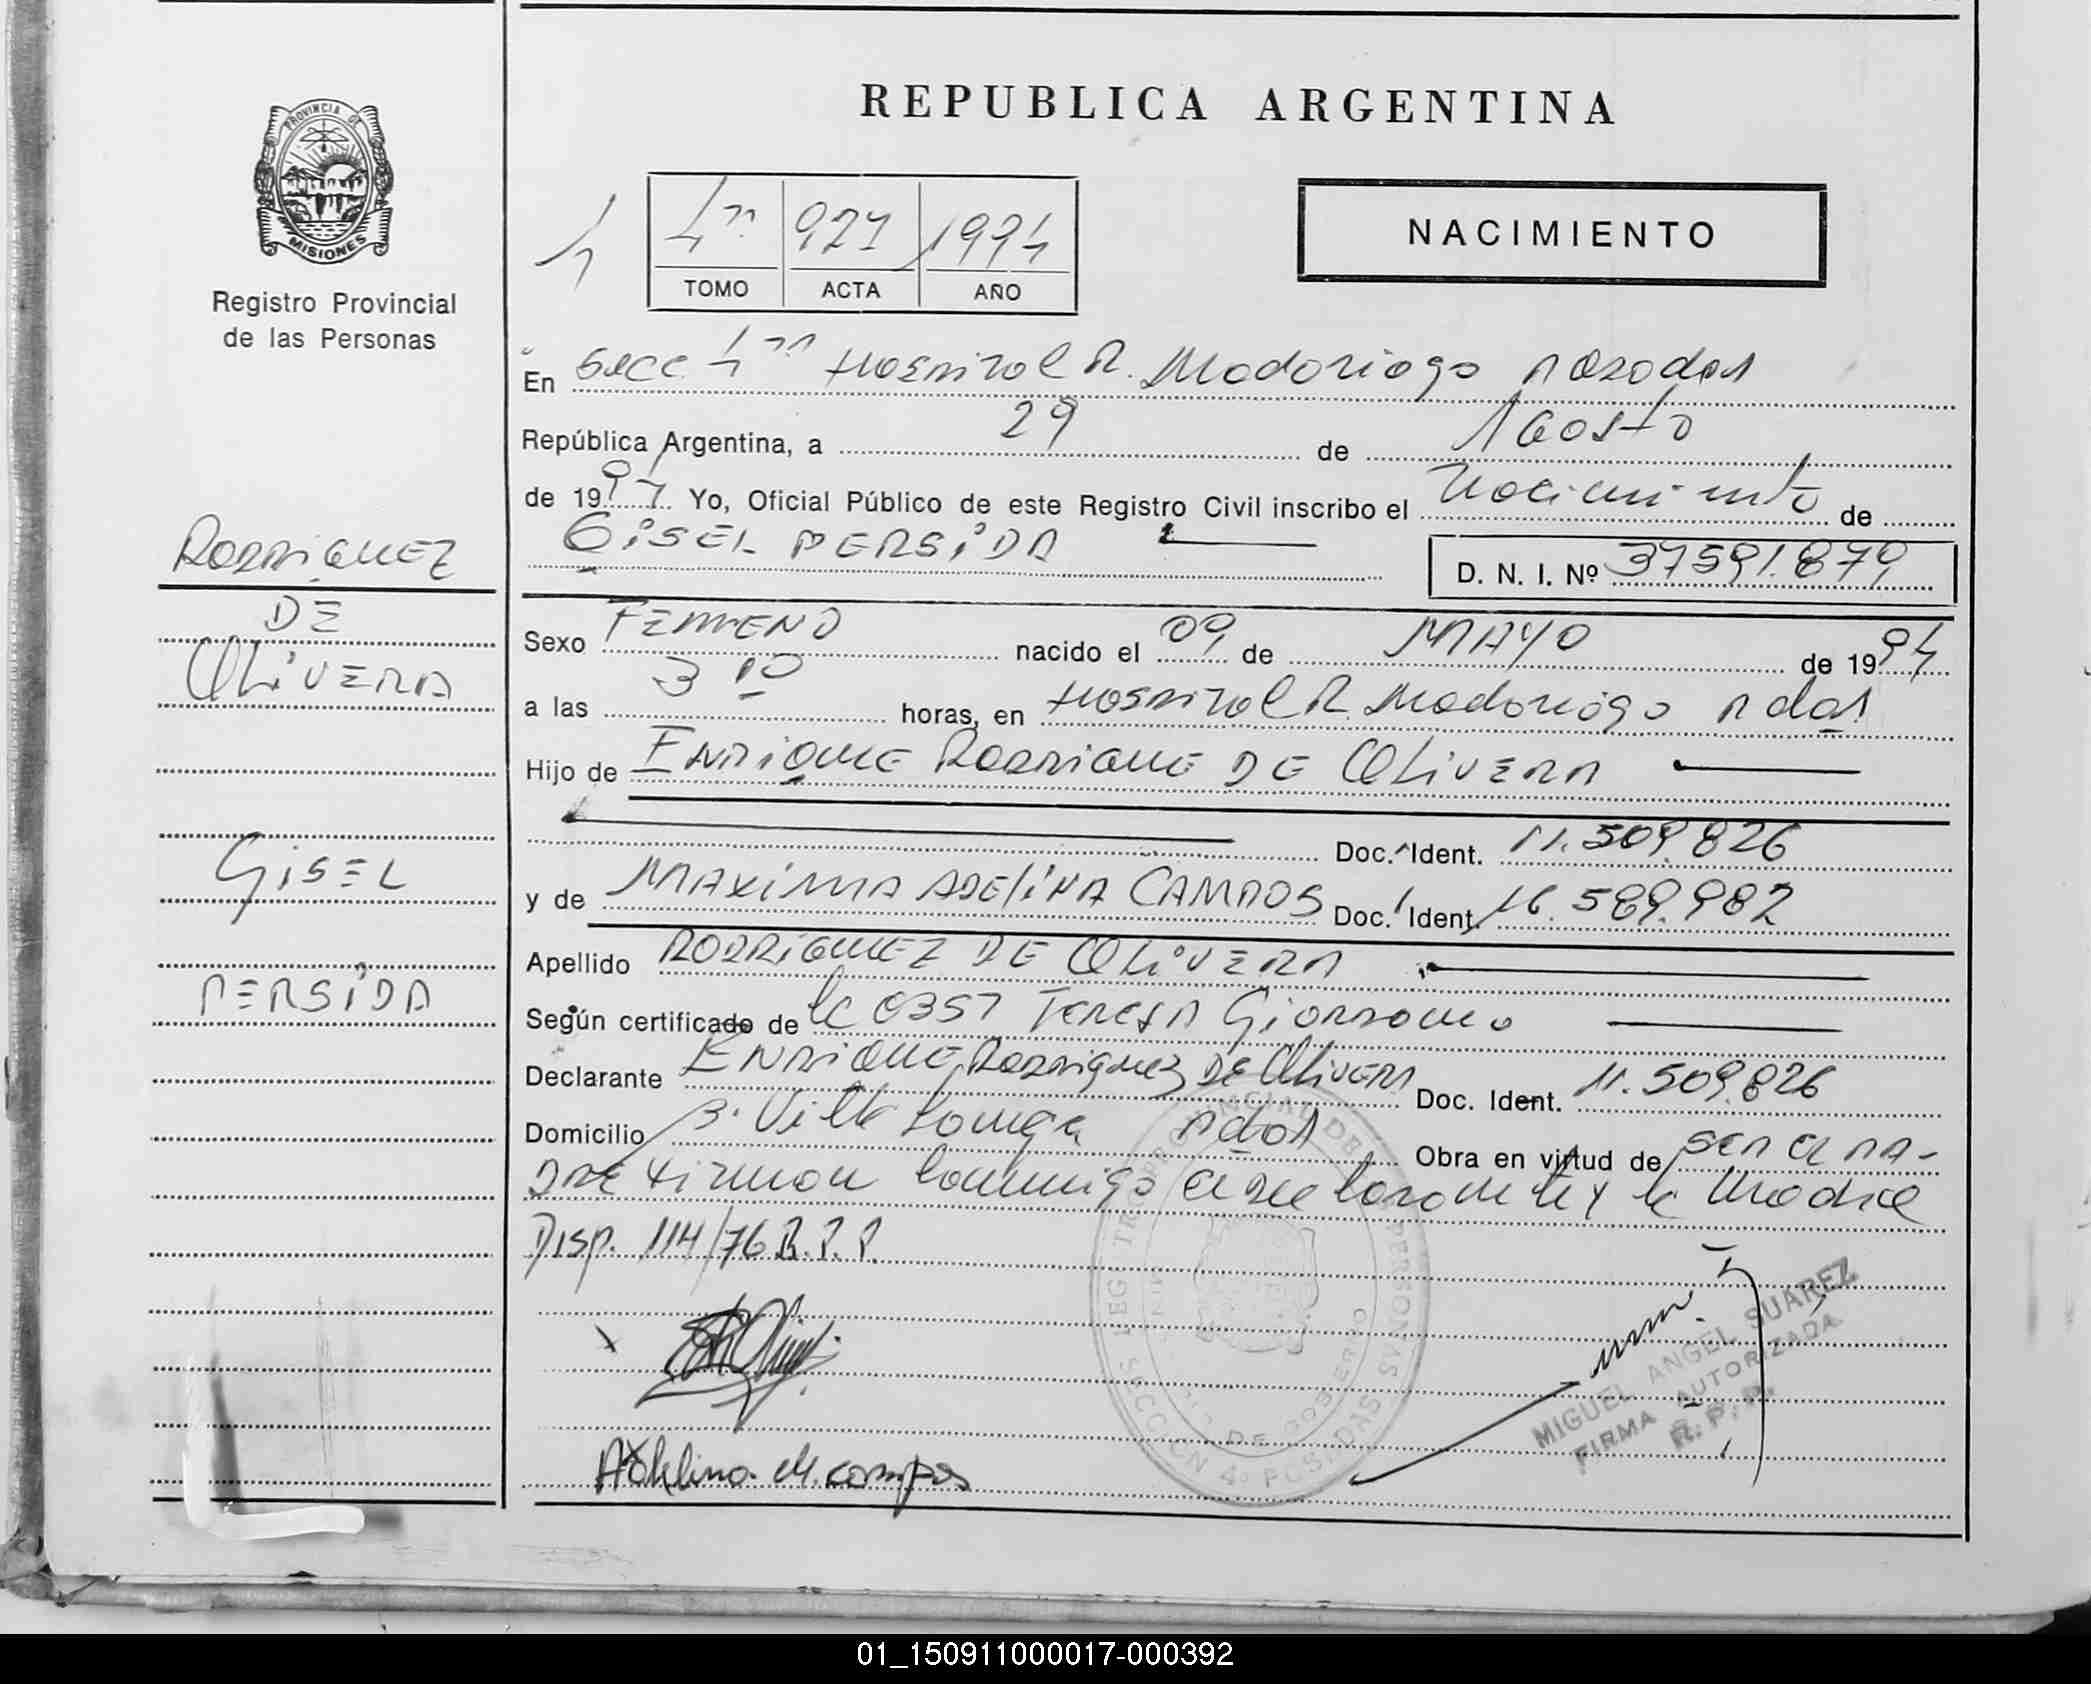 REPUBLICA ARGENTINA
PROVINCIA DE
MISIONES
Registro Provincial
de las Personas
4
4ta 927 1994
TOMO ACTA AÑO
NACIMIENTO
En Secc 4ta Hospital R. Madariaga Posadas
República Argentina, a 29 de Agosto
de 1994 Yo, Oficial Público de este Registro Civil inscribo el Nacimiento de
GISEL PERSIDA
D. N. I. Nº 37591.879
RODRIGUEZ
DE
OLIVERA
GISEL
PERSIDA
Sexo FEMENO nacido el 09 de MAYO de 1994
a las 3 10 horas, en Hospital R. Madariaga Pdas
Hijo de ENRIQUE RODRIGUE DE OLIVERA
Doc. Ident. 11.509.826
y de MAXIMA ADELINA CAMPOS Doc. Ident. 16.589.982
Apellido RODRIGUEZ DE OLIVERA
Según certificado de la 0357 TERESA
Declarante ENRIQUE RODRIGUEZ DE OLIVERA Doc. Ident. 11.509.826
Domicilio B. Villa Pdas Obra en virtud de SER EL PA-
DRE Firman conmigo el declarante y la Madre
Disp. 114/76 R.P.P.
REG. PROVINCIAL DE LAS PERSONAS
DE GOBIERNO
SECCION 4ª POSADAS
MIGUEL ANGEL SUAREZ
FIRMA AUTORIZADA
R. P. P.
M. Campos
01_150911000017-000392